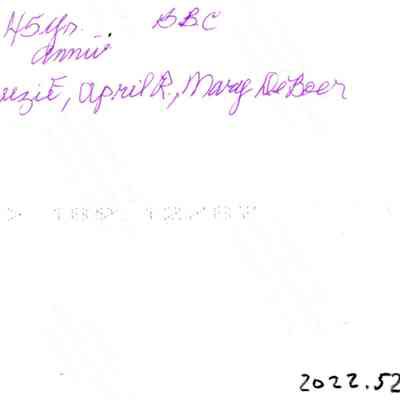 45yr. BBC
Annie
uzie E, April R., Mary DeBoer
2022.52